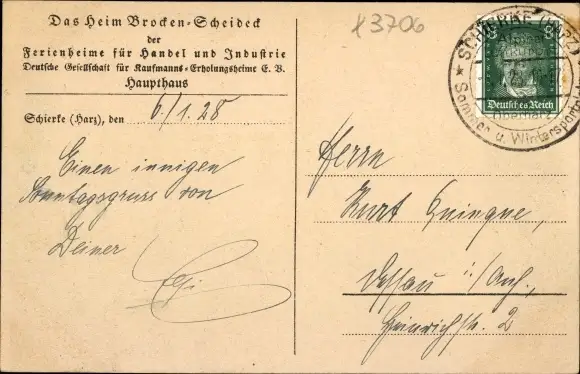 Das Heim Brocken-Scheideck
der
Ferienheime für Handel und Industrie
Deutsche Gesellschaft für Kaufmanns-Erholungsheime E. V.
Haupthaus
Schierke (Harz), den 6/1. 28
Einen innigen
Sonntagsgruss von
Deiner
k3706
SCHIERKE (HARZ)
Sommer u. Wintersport
Oberharz
8 8
Deutsches Reich
Herrn
Kurt Quingue,
Dessau i/Anh.,
Heinrichstr. 2